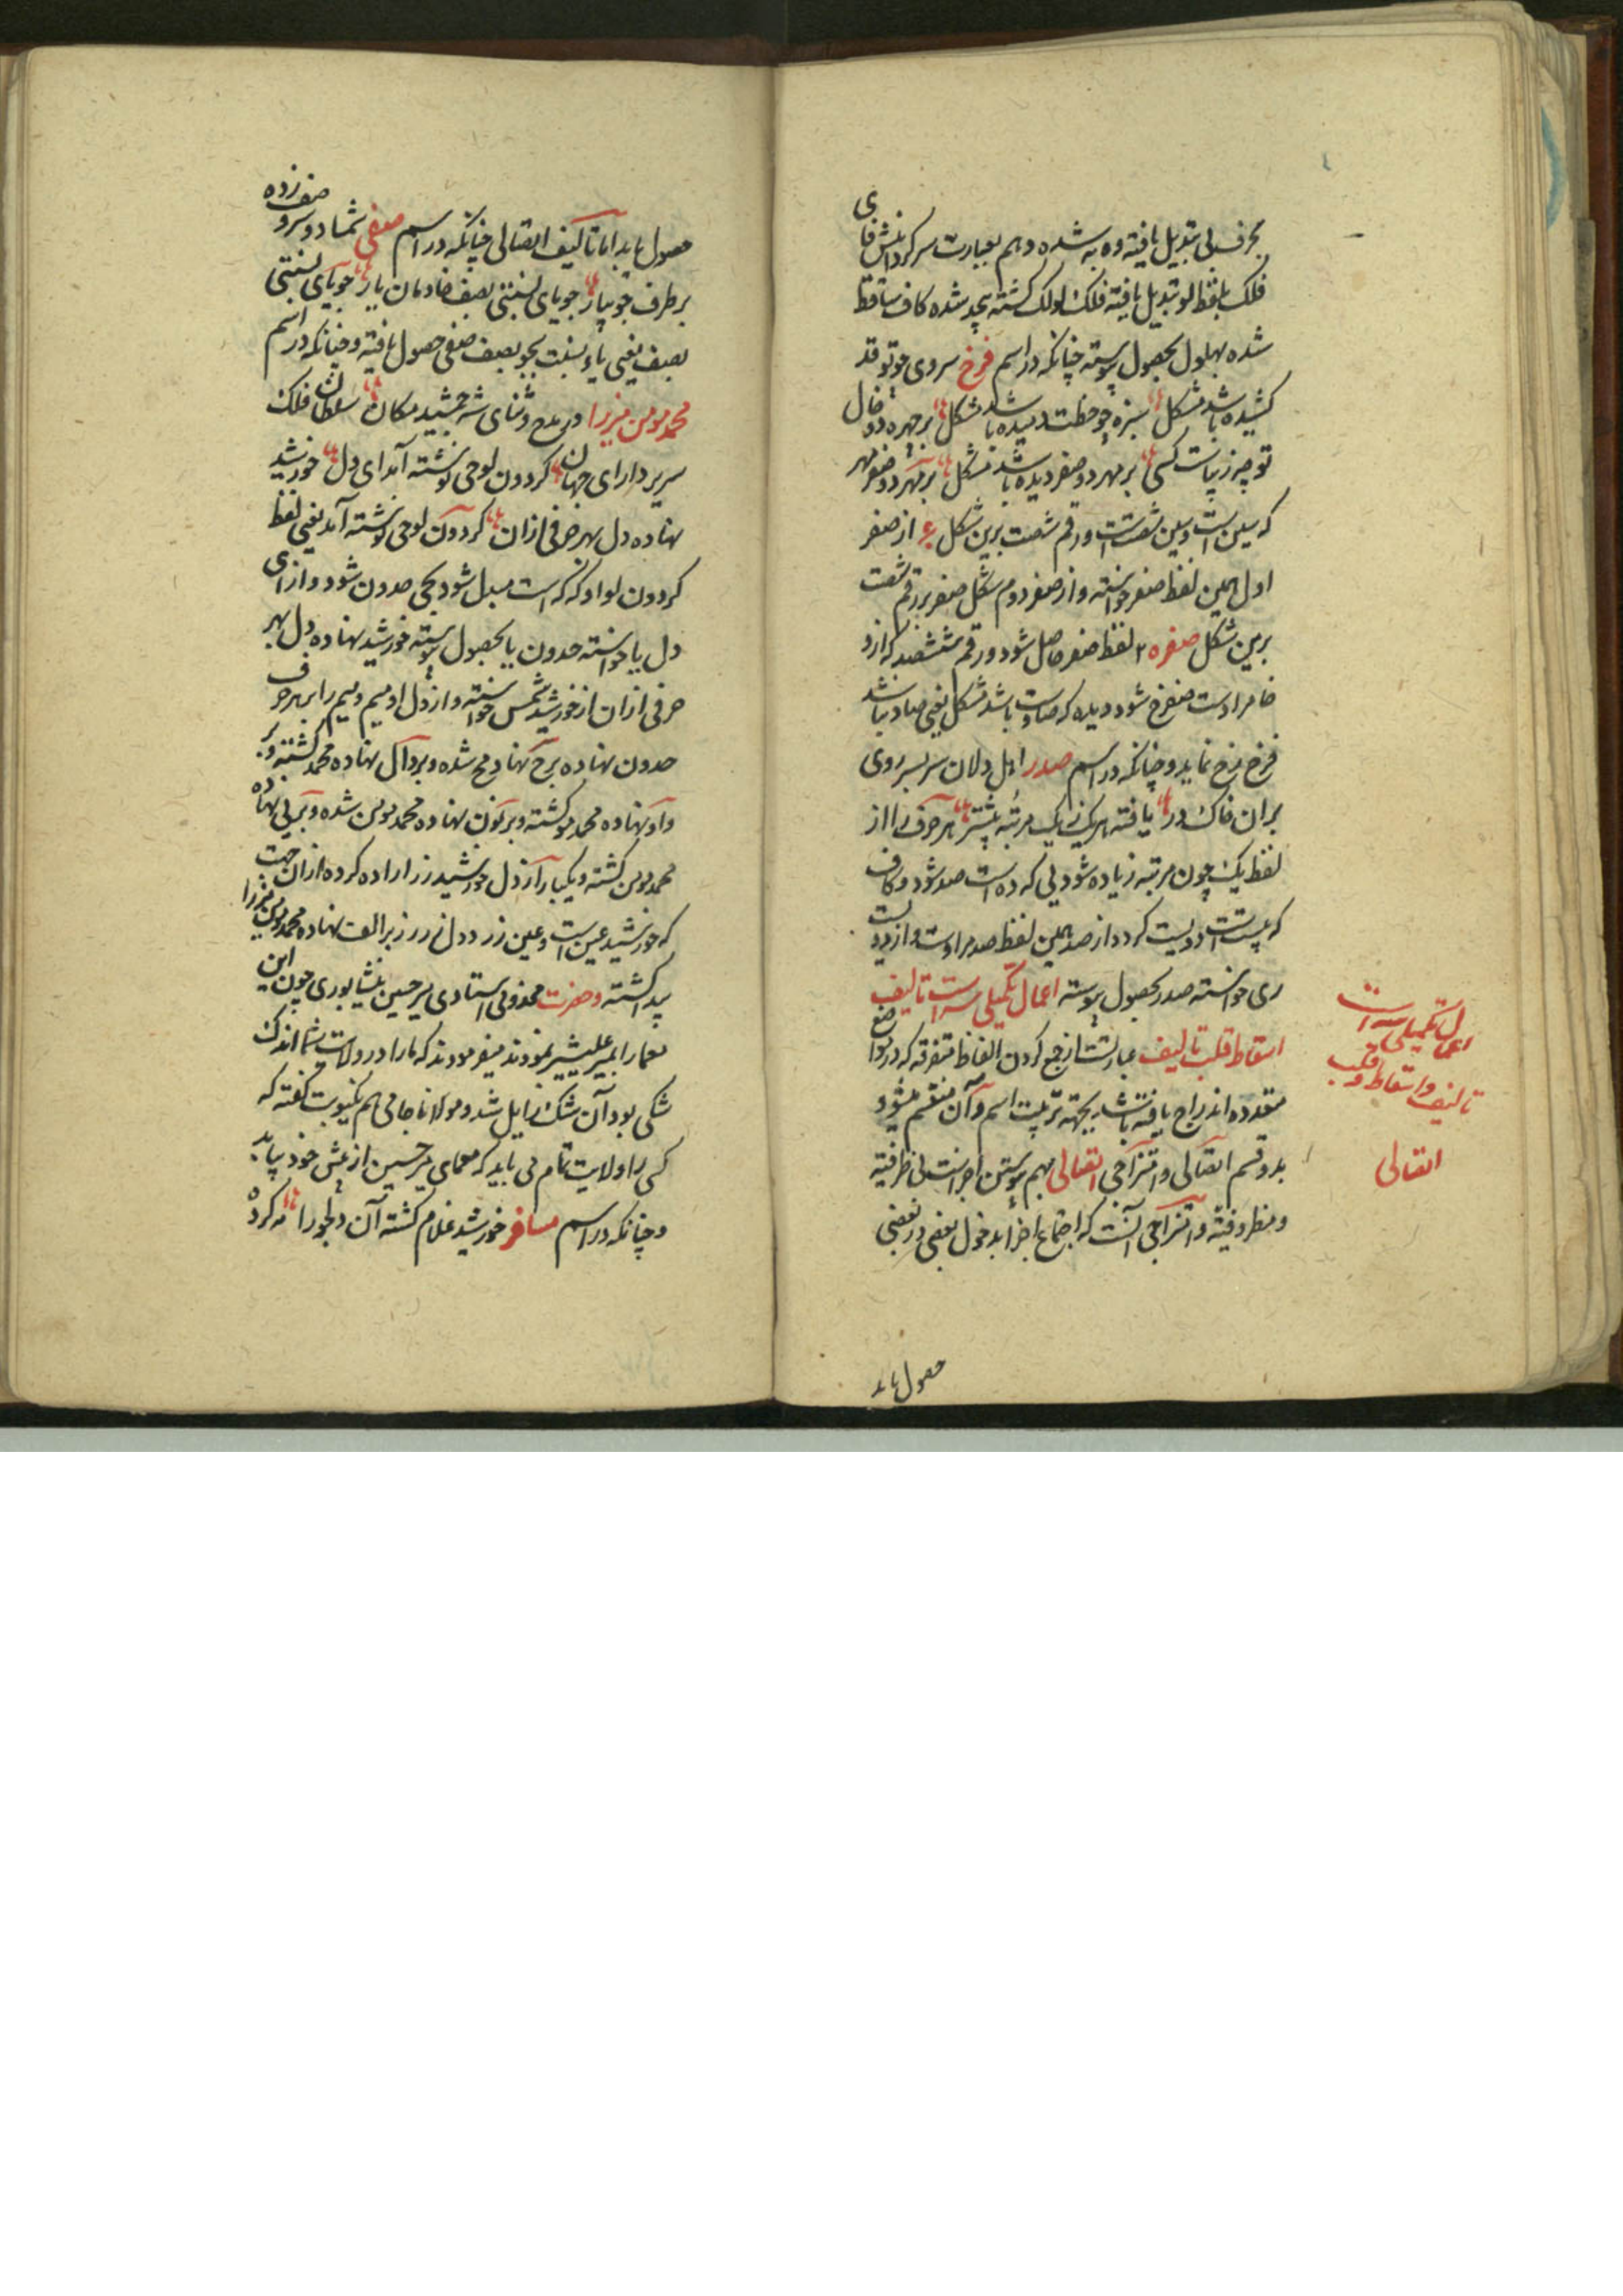 بحرف بی تبدیل یافته وه به شده و هم بعبارت سر کردانش فای
فلک بلفظ لو تبدیل یافته فلک لولک کشته بچد شده کاف ساقط
شده بهلول بحصول پیوسته چنانکه در اسم فرخ سروی چو تو قد
کشیده باشد مشکل سبزه چو خطت دمیده باشد مشکل بر چهره دو خال
تو چه زیباست کسی بر مهر دو صفر دیده باشد مشکل بر مهر دو صفر مهر
که سین است و سین شصت است و رقم شصت برین شکل از صفر
اول همین لفظ صفر خواسته و از صفر دوم شکل صفر بر رقم شصت
برین شکل صفره لفظ صفر حاصل شود و رقم ششصد که ازو
خا مرادست صفرخ شود دیده که صادست باشد مشکل یعنی صاد نباشد
فرخ رخ نماید و چنانکه در اسم صدر اهل دلان سر بسر روی
بران خاک در یافته هر یک ز یک مرتبه بیشتر هر حرف را از
لفظ یک چون مرتبه زیاده شود یی که ده است صد شود و کاف
که بیست است دویست کردد از صد همین لفظ صد مرادست و از دویست
ری خواسته صدر بحصول پیوسته اعمال تکمیلی سه است تالیف
اسقاط قلب تالیف عبارتست از جمع کردن الفاظ متفرقه که در مواضع
متعدده اندراج یافته باشد بجهته ترتیب اسم و آن منقسم میشود
بدو قسم اتصالی و امتزاجی اتصالی بهم پیوستن اجزاست بی ظرفیته
و مظروفیة و امتزاجی آنست که اجتماع اجزا بدخول بعضی در بعضی
حصول یابد
اعمال تکمیلی سه است
تالیف و اسقاط و قلب
اتصالی
حصول یابد اما تالیف اتصالی چنانکه در اسم صفی شمشاد و سرو صف زده
بر طرف جویبار جویای نسبتی بصف خادمان یار جویای نسبتی
بصف یعنی یاء نسبت بجو بصف صفی حصول یافته و چنانکه در اسم
محمد مومن میرزا در مدح و ثنای شه جمشید مکان سلطان فلک
سریر دارای جهان کردون لوحی نوشته آمد ای دل خورشید
نهاده دل بهر حرفی ازان کردون لوحی نوشته آمد یعنی لفظ
کردون لو او که که است مبدل شود بحی حدون شود و از ای
دل یا خواسته حدون یا بحصول پیوسته خورشید نهاده دل بهر
حرفی ازان از خورشید شمس خواسته و از دل او میم و میم را بر هر حرف
حدون نهاده بر ح نهاد مح شده و بر دال نهاده محمد کشته و بر
واو نهاده محمد مو کشته و بر نون نهاده محمد مومن شده و بر یی نهاده
محمد مومن کشته و یکبار از دل خورشید زر اراده کرده ازان جهت
که خورشید عین است و عین زر و دل زر ز بر الف نهاده محمد مومن میرزا
پیدا کشته و حضرت مخدومی استادی میر حسین نیشابوری چون این
معما را بمیر علیشیر نمودند میفرمودند که ما را در ولایت شما اندک
شکی بود آن شک زایل شد و مولانا جامی هم بکنیوبت کفته که
کسی را ولایت تمام می باید که معمای میر حسین از پیش خود بیابد
و چنانکه در اسم مسافر خورشید غلام کشته آن دلجو را مه کرده